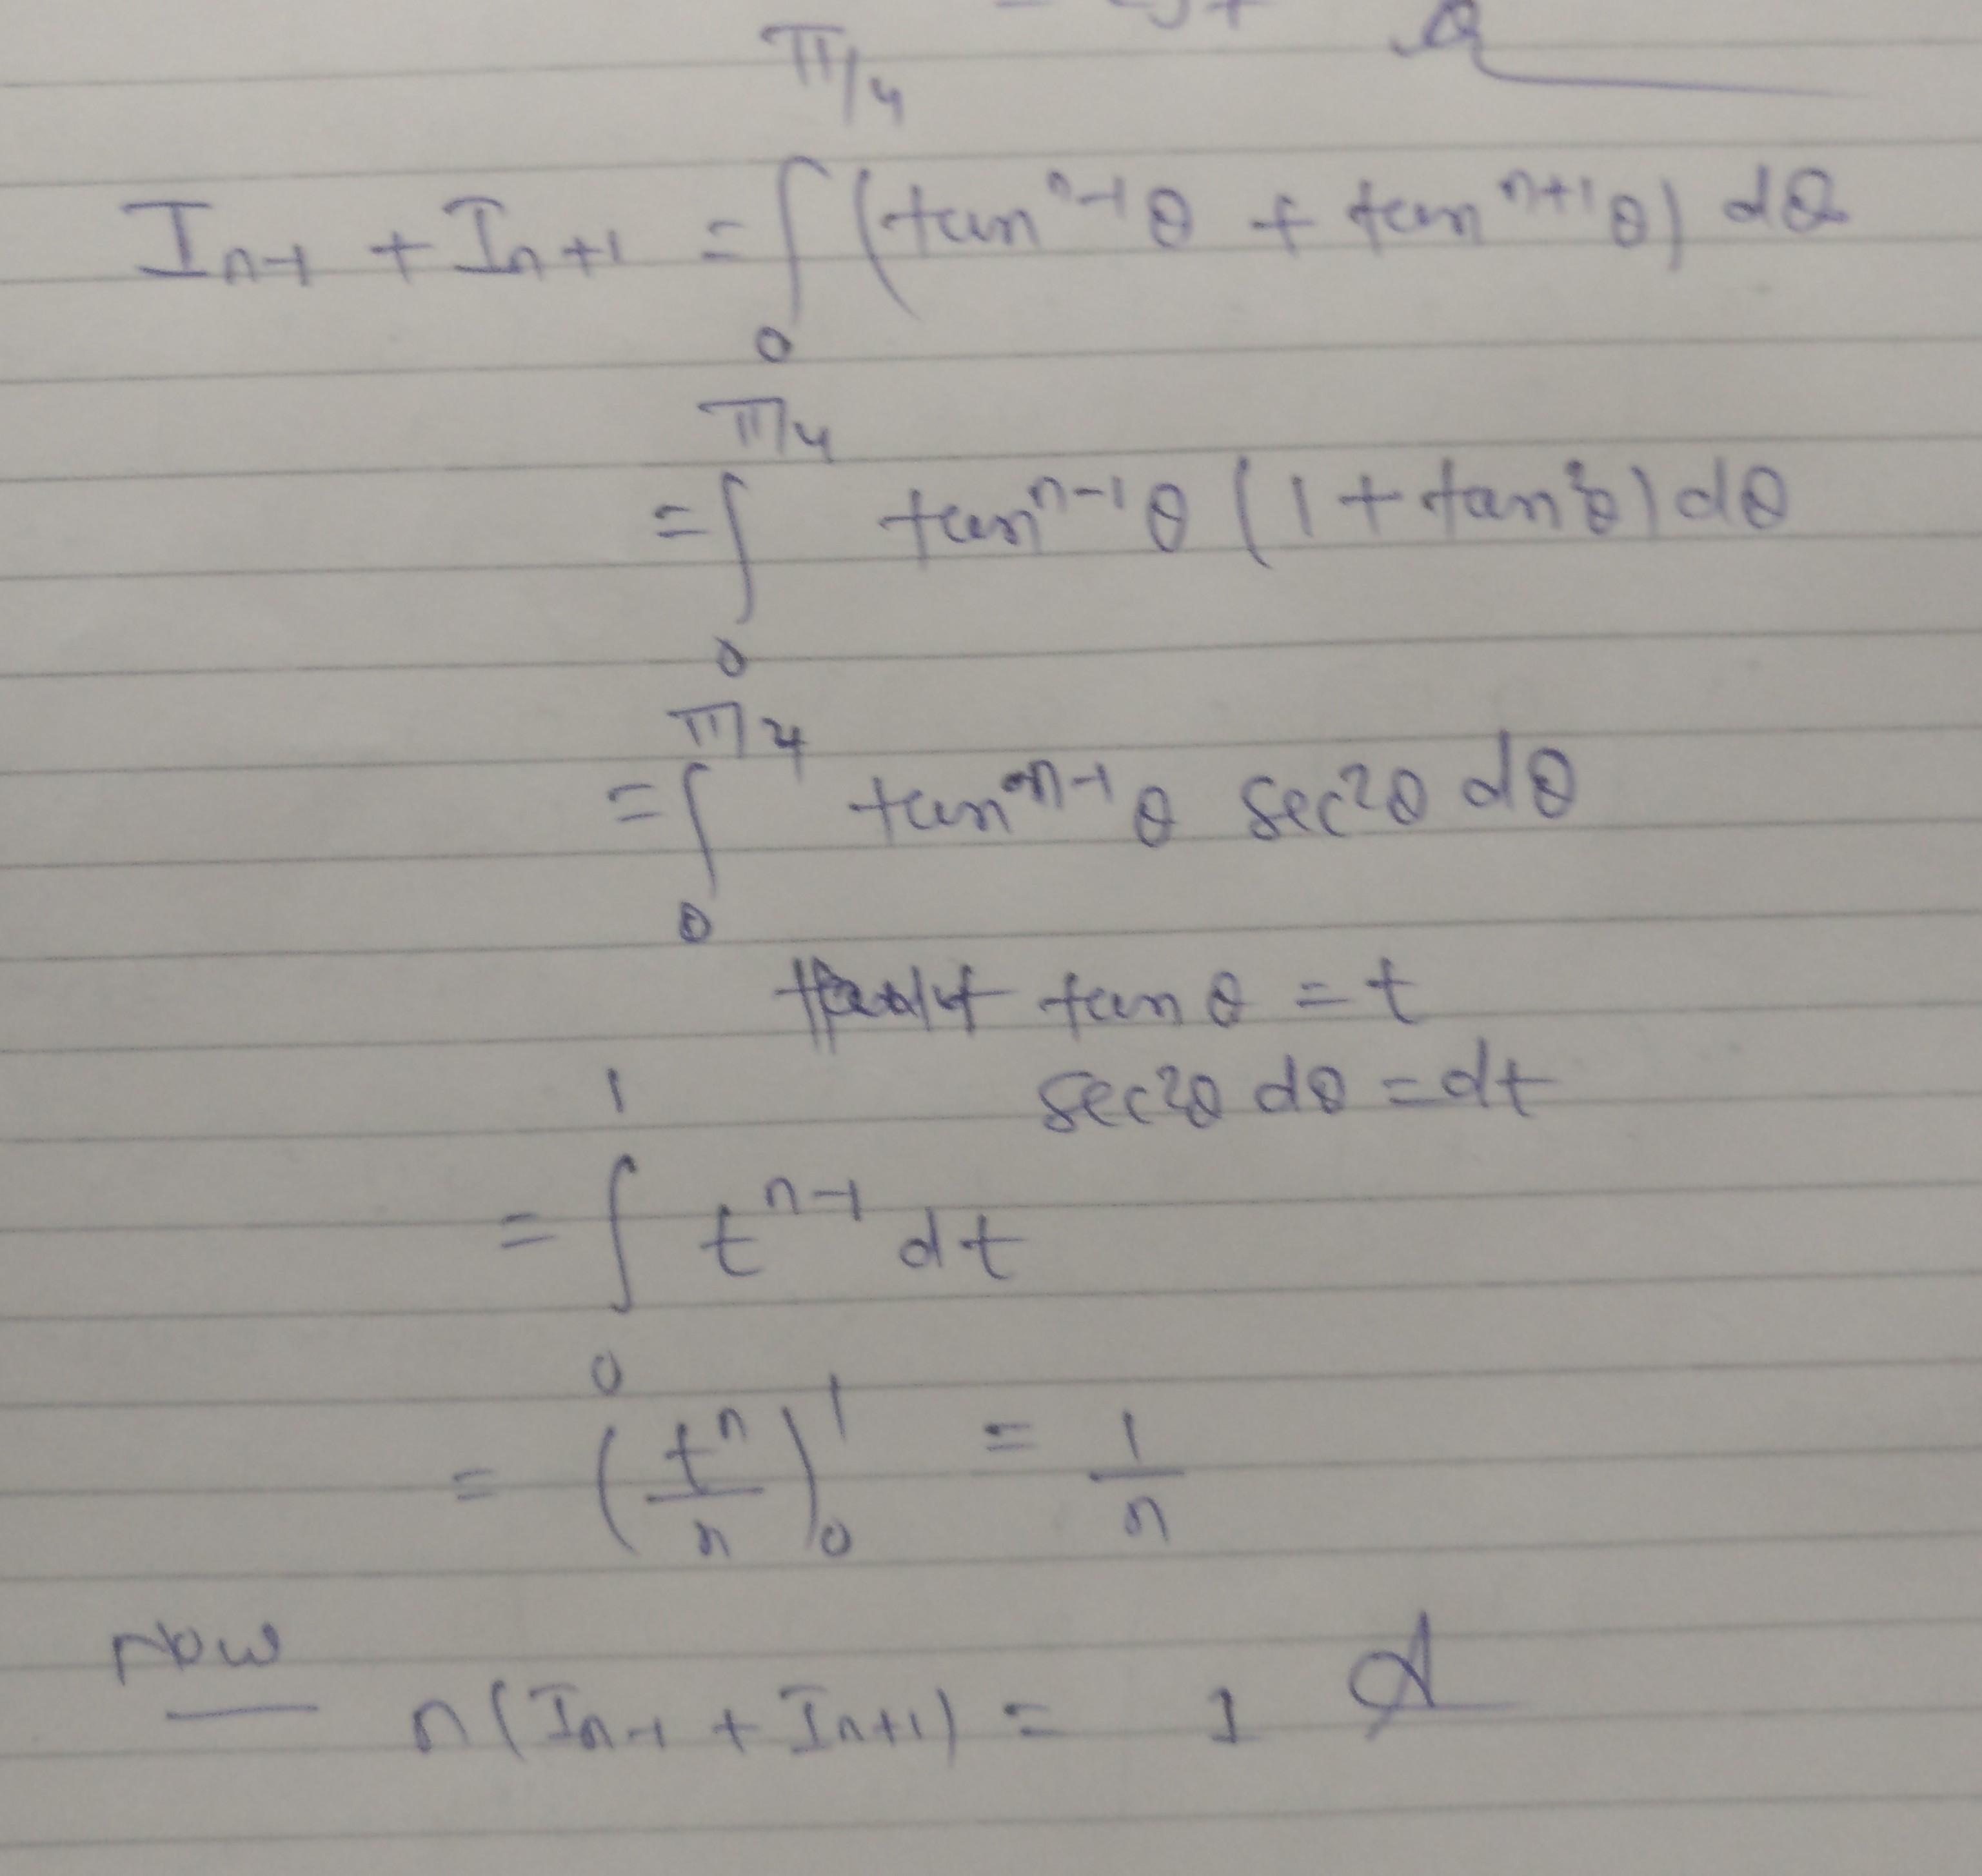 π/4
I_{n-1} + I_{n+1} = ∫ (tan^{n-1}θ + tan^{n+1}θ) dθ
0
π/4
= ∫ tan^{n-1}θ (1 + tan²θ) dθ
0
π/4
= ∫ tan^{n-1}θ sec²θ dθ
0
tanθ = t
1 sec²θ dθ = dt
= ∫ t^{n-1} dt
0
= (t^n/n)_0^1 = 1/n
Now
n(I_{n-1} + I_{n+1}) = 1